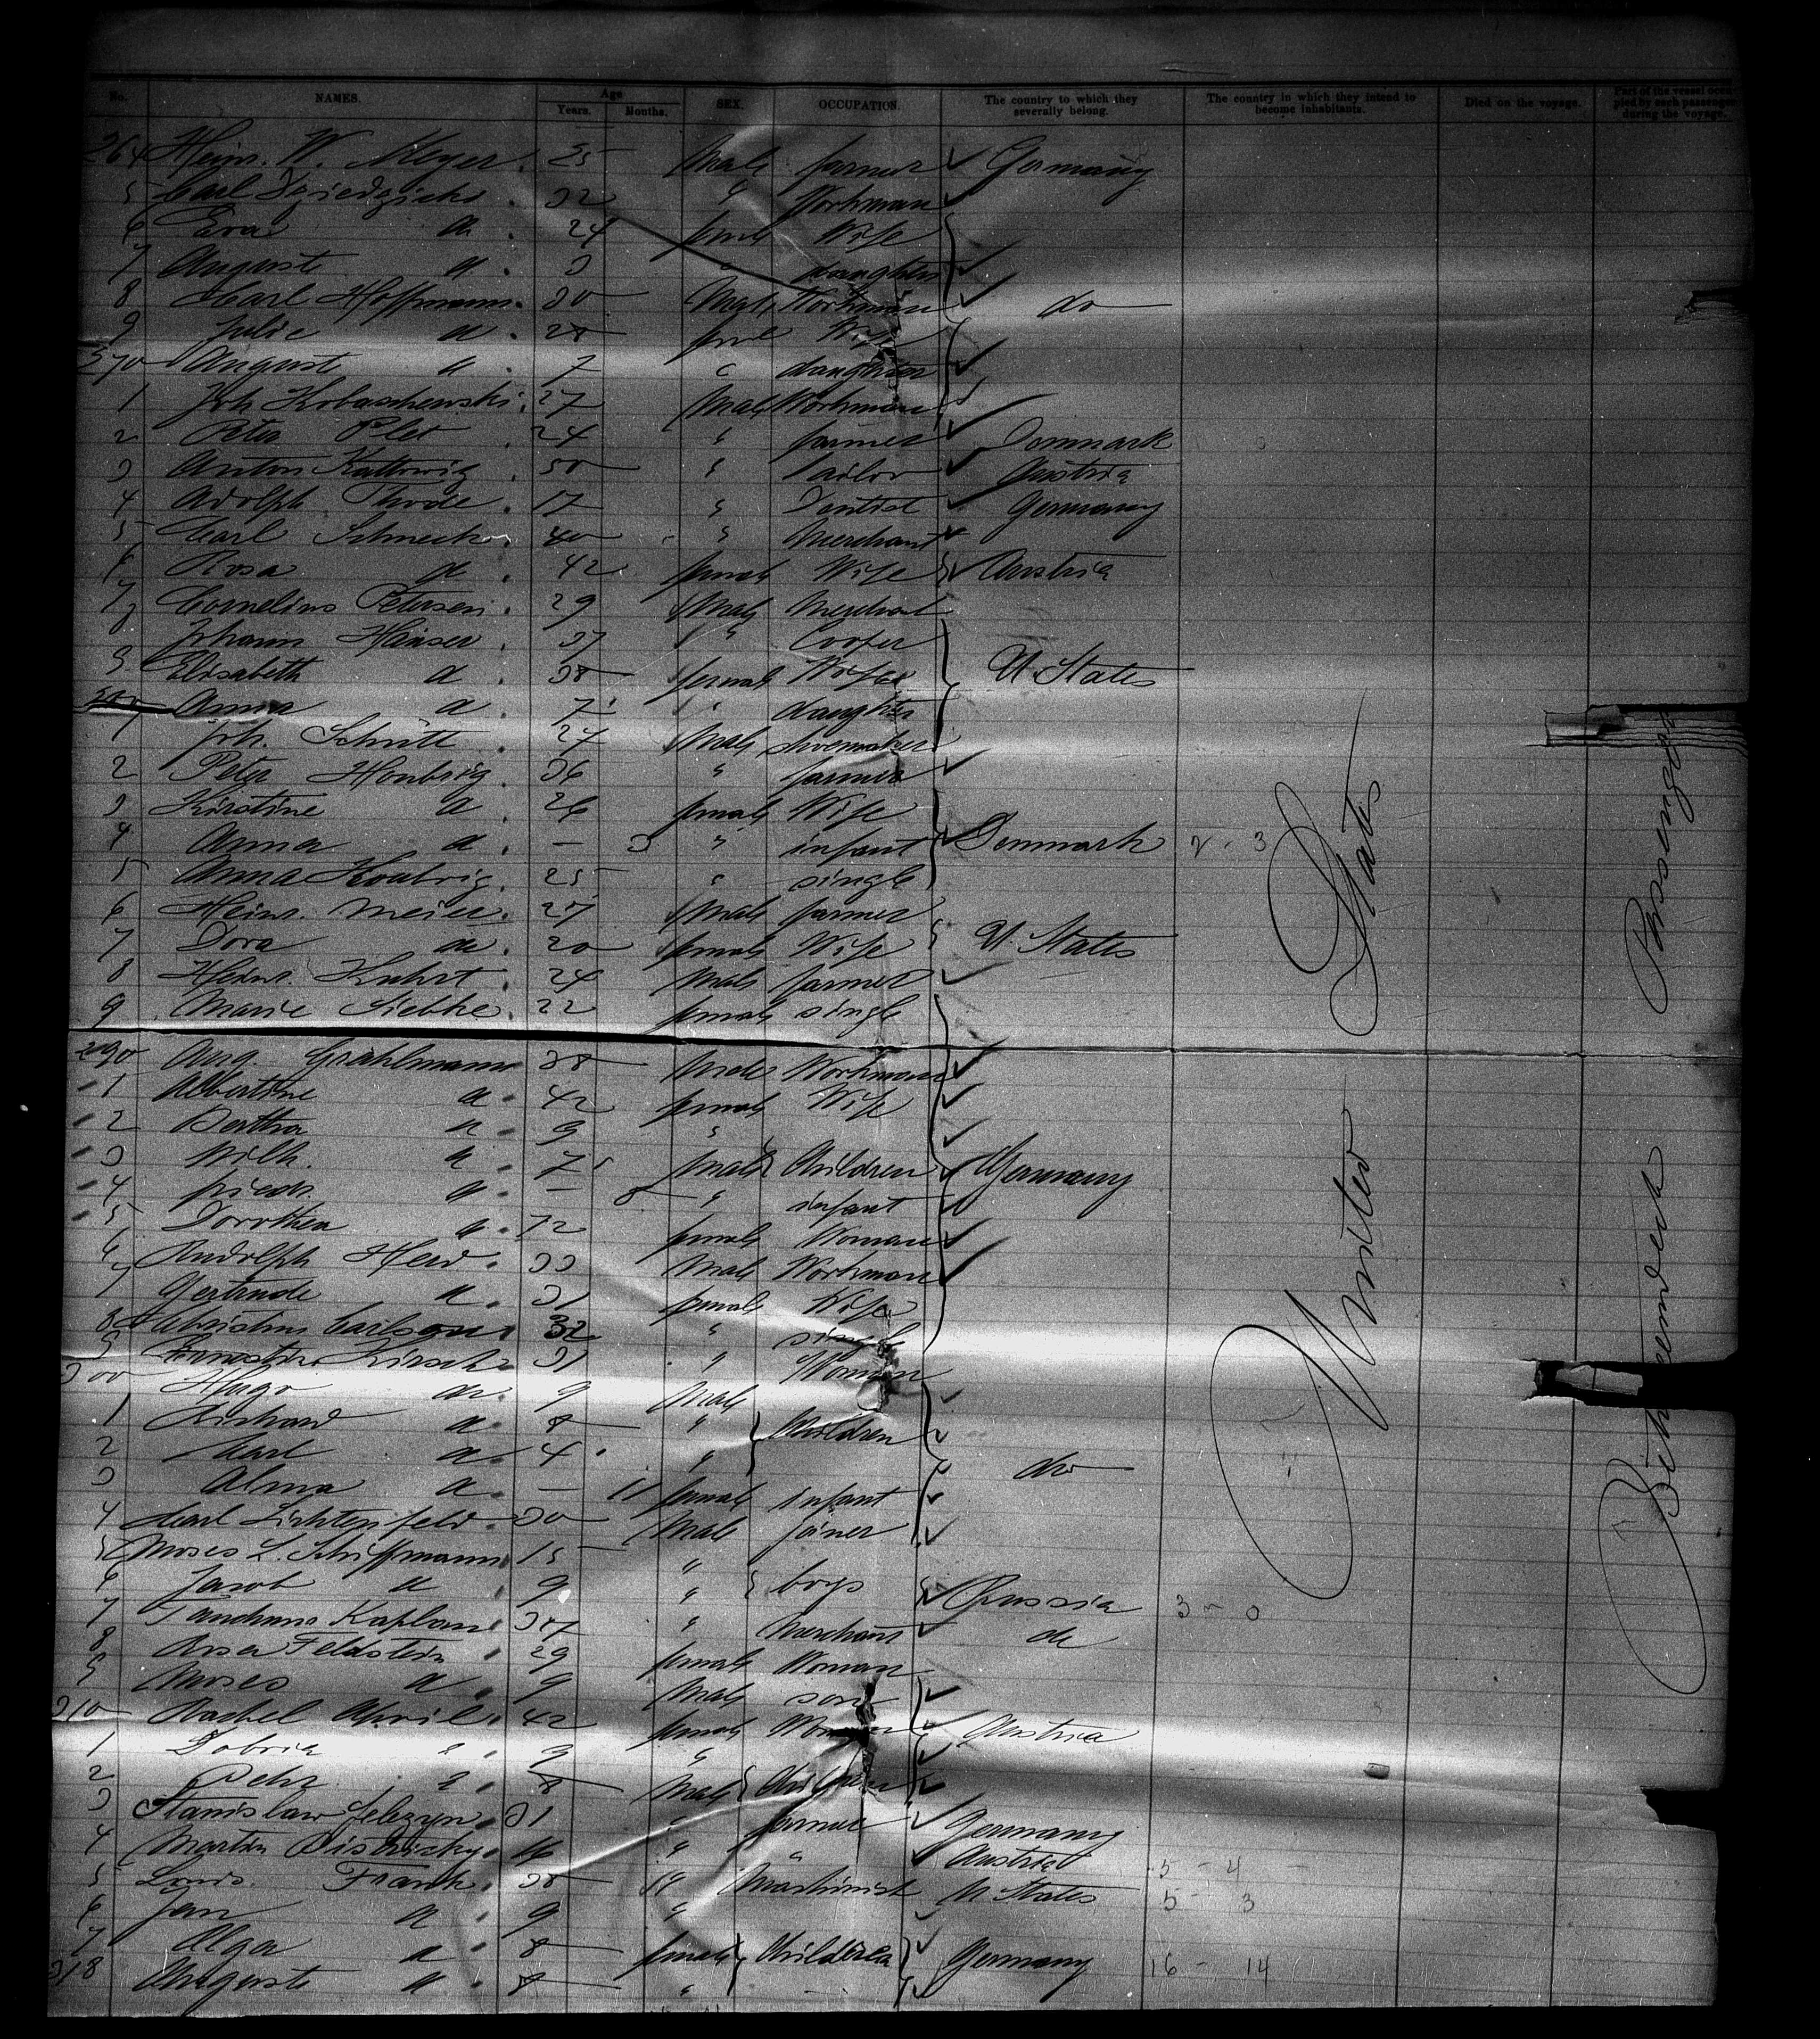 No. NAMES. Age Years. Months. SEX. OCCUPATION. The country to which they severally belong. The country in which they intend to become inhabitants. Died on the voyage. Part of the vessel occupied by each passenger during the voyage.
264 Heinr. W. Meyer. 25 Male farmer Germany
5 Carl 32 " Workman
6 Eva a. 24 female Wife
7 Auguste a. 3 " daughter
8 Carl Hoffmann. 30 Male Workman do
9 Julie a. 28 female Wife
270 Auguste a. 7 " daughter
1 Joh Kobaschewski. 27 Male Workman
2 Peter Plet. 24 " farmer Denmark
3 Anton Kattowig. 50 " Tailor Austria
4 Adolph Thode. 17 " Dentist Germany
5 Carl Schneck. 40 " Merchant
6 Rosa a. 42 female Wife Austria
7 Cornelius Petersen. 29 Male Merchant
8 Johann Heuser. 37 " Cooper
9 Elisabeth a. 38 female Wife U. States
280 Anna a. 7 " daughter
1 Joh. Schütt. 24 Male shoemaker
2 Peter Houbrig. 36 " farmer
3 Kirstine a. 26 female Wife
4 Anna a. — 3 " infant Denmark 2 - 3
5 Anna Houbrig. 25 " single
6 Heinr. Meier. 27 Male farmer
7 Dora a. 20 female Wife U. States
8 Heinr. Kuhrt. 24 Male farmer
9 Marie Siebke. 22 female single
290 Aug. Grahlmann 38 Male Workman
1 Albertine a. 42 female Wife
2 Bertha a. 9 "
3 Wilh. a. 7 female Children Germany
4 Friedr. a. — 8 " infant
5 Dorothea a. 72 female Woman
6 Rudolph Herd. 33 Male Workman
7 Gertrude a. 31 female Wife
8 Christine Carlson 32 " single
9 Ernestine Kirsch 31 " Woman
300 Hugo a. 9 Male
1 Richard a. 8 " Children
2 Carl a. 4 " do
3 Alma a. — 11 female infant
4 Carl Lichtenfeld 30 Male joiner
5 Moses L. Schiffmann 15 "
6 Jacob a. 9 " boys Russia 3 - 0
7 Kaplan 37 " Merchant do
8 Rosa Feldstein 29 female Woman
9 Moses a. 9 Male son
310 Rachel April. 42 female Woman Austria
1 Dobrie a. 9 "
2 a. 8 Male Children
3 Stanislaw 31 " farmer Germany
4 Martin 16 " " Austria 5 - 4
5 Louis Frank. 38 " Machinist U States 5 3
6 Jan a. 9 "
7 Olga a 8 female Children Germany 16 - 14
318 Auguste a 8 "
United States
Between deck Passenger